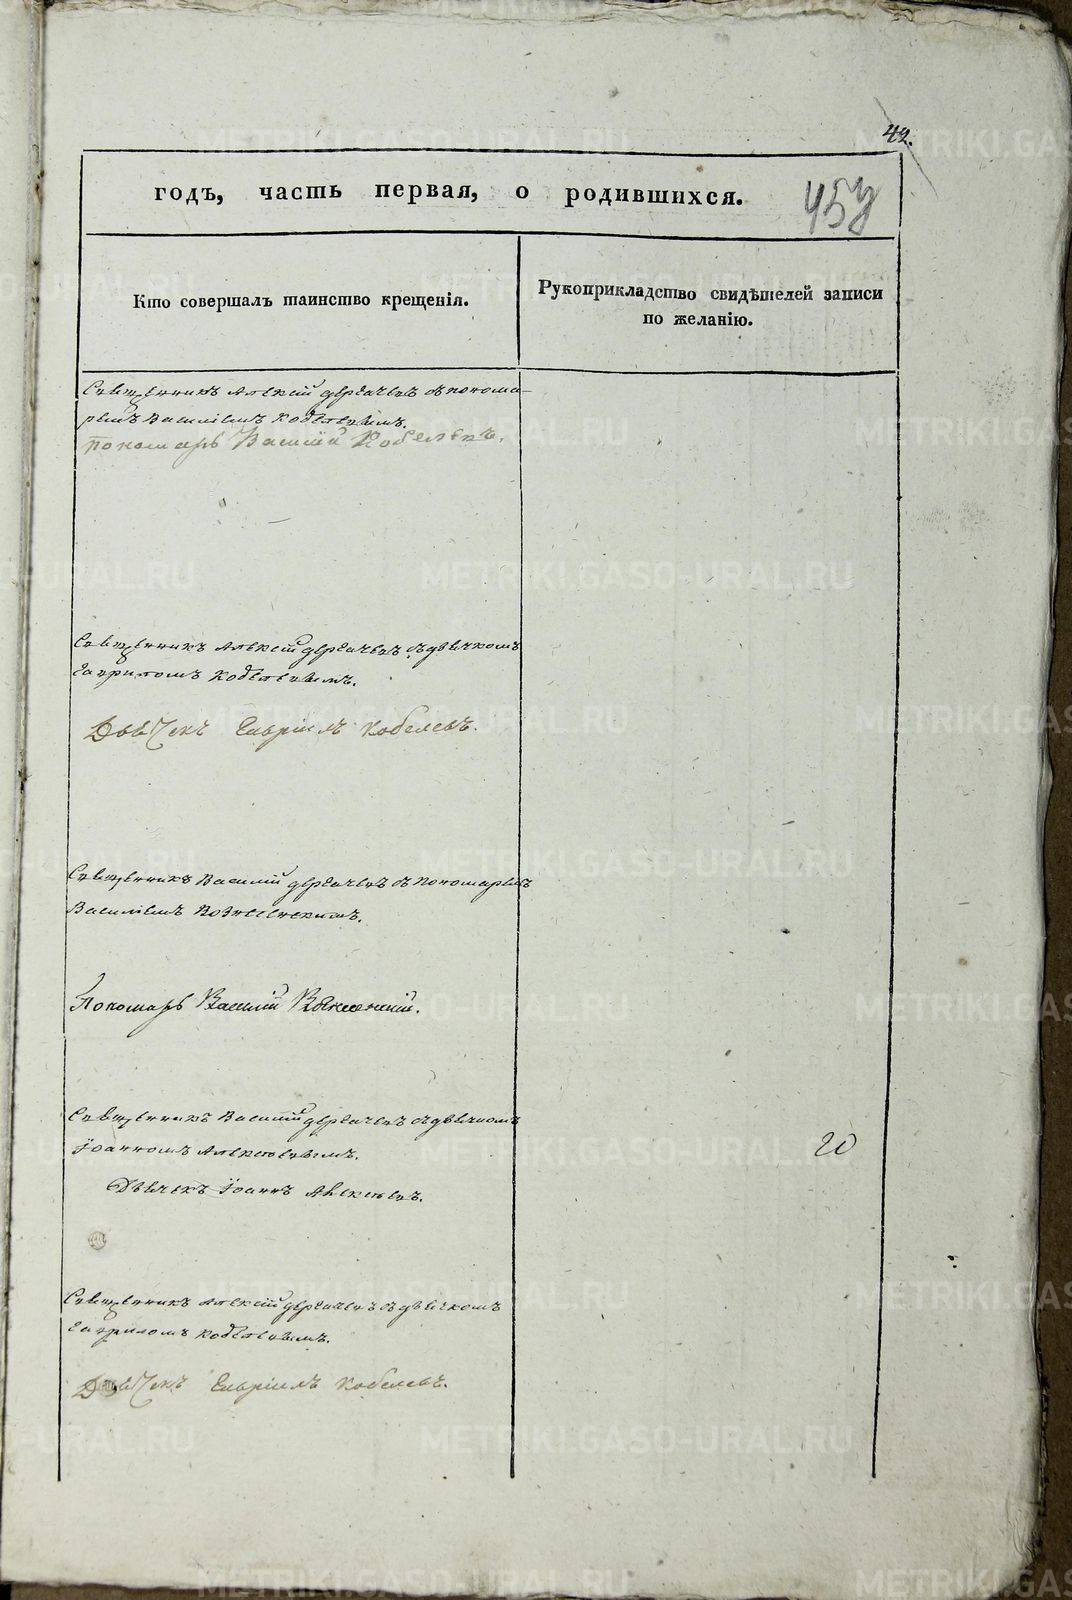 42.
годъ, часть первая, о родившихся.
Кто совершалъ таинство крещенія.
Рукоприкладство свидѣтелей записи
по желанію.
Священникъ Алексій Дергачевъ съ понома-
ремъ Василіемъ Кобелевымъ.
Пономарь Василій Кобелевъ.
Священникъ Алексій Дергачевъ съ дьячкомъ
Гавриломъ Кобелевымъ.
Дьячекъ Гавріилъ Кобелевъ.
Священникъ Василій Дергачевъ съ Пономаремъ
Василіемъ Вознесенскимъ.
Пономарь Василій
Священникъ Василій Дергачевъ съ дьячкомъ
Іоанномъ Алексѣевымъ.
20
Дьячекъ Іоаннъ Алексѣевъ.
Священникъ Алексій Дергачевъ съ дьячкомъ
Гавриломъ Кобелевымъ.
Дьячекъ Гавріилъ Кобелевъ.
METRIKI.GASO-URAL.RU